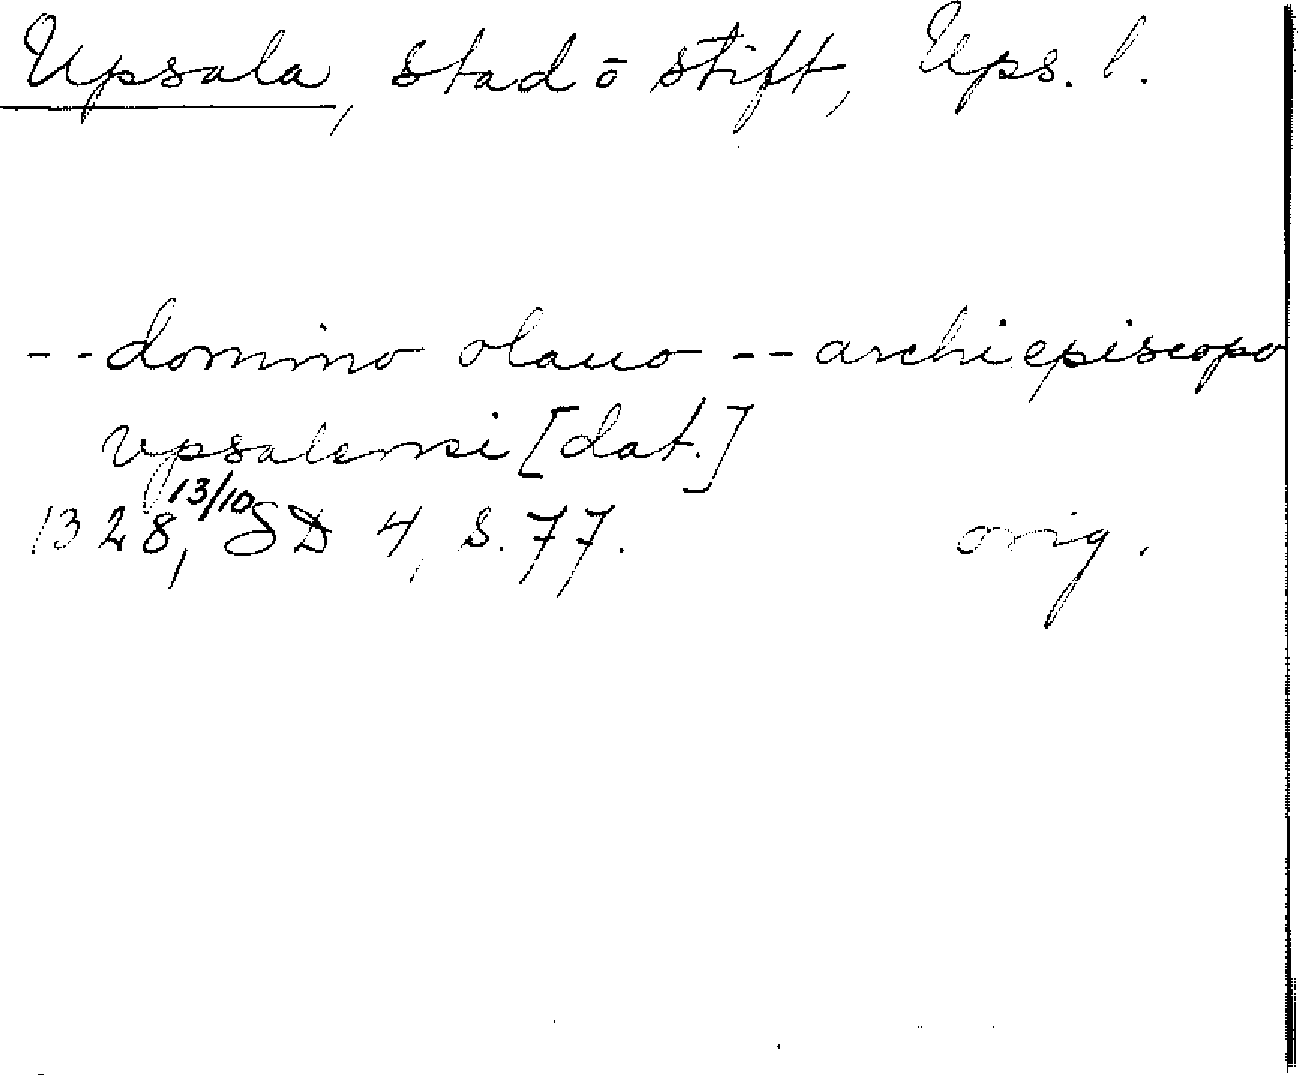 Upsala, stad ō stift, Ups. l.
-- domino olauo -- archiepiscopo
vpsalensi [dat.]
1328, 13/10 SD 4, S. 77. orig.